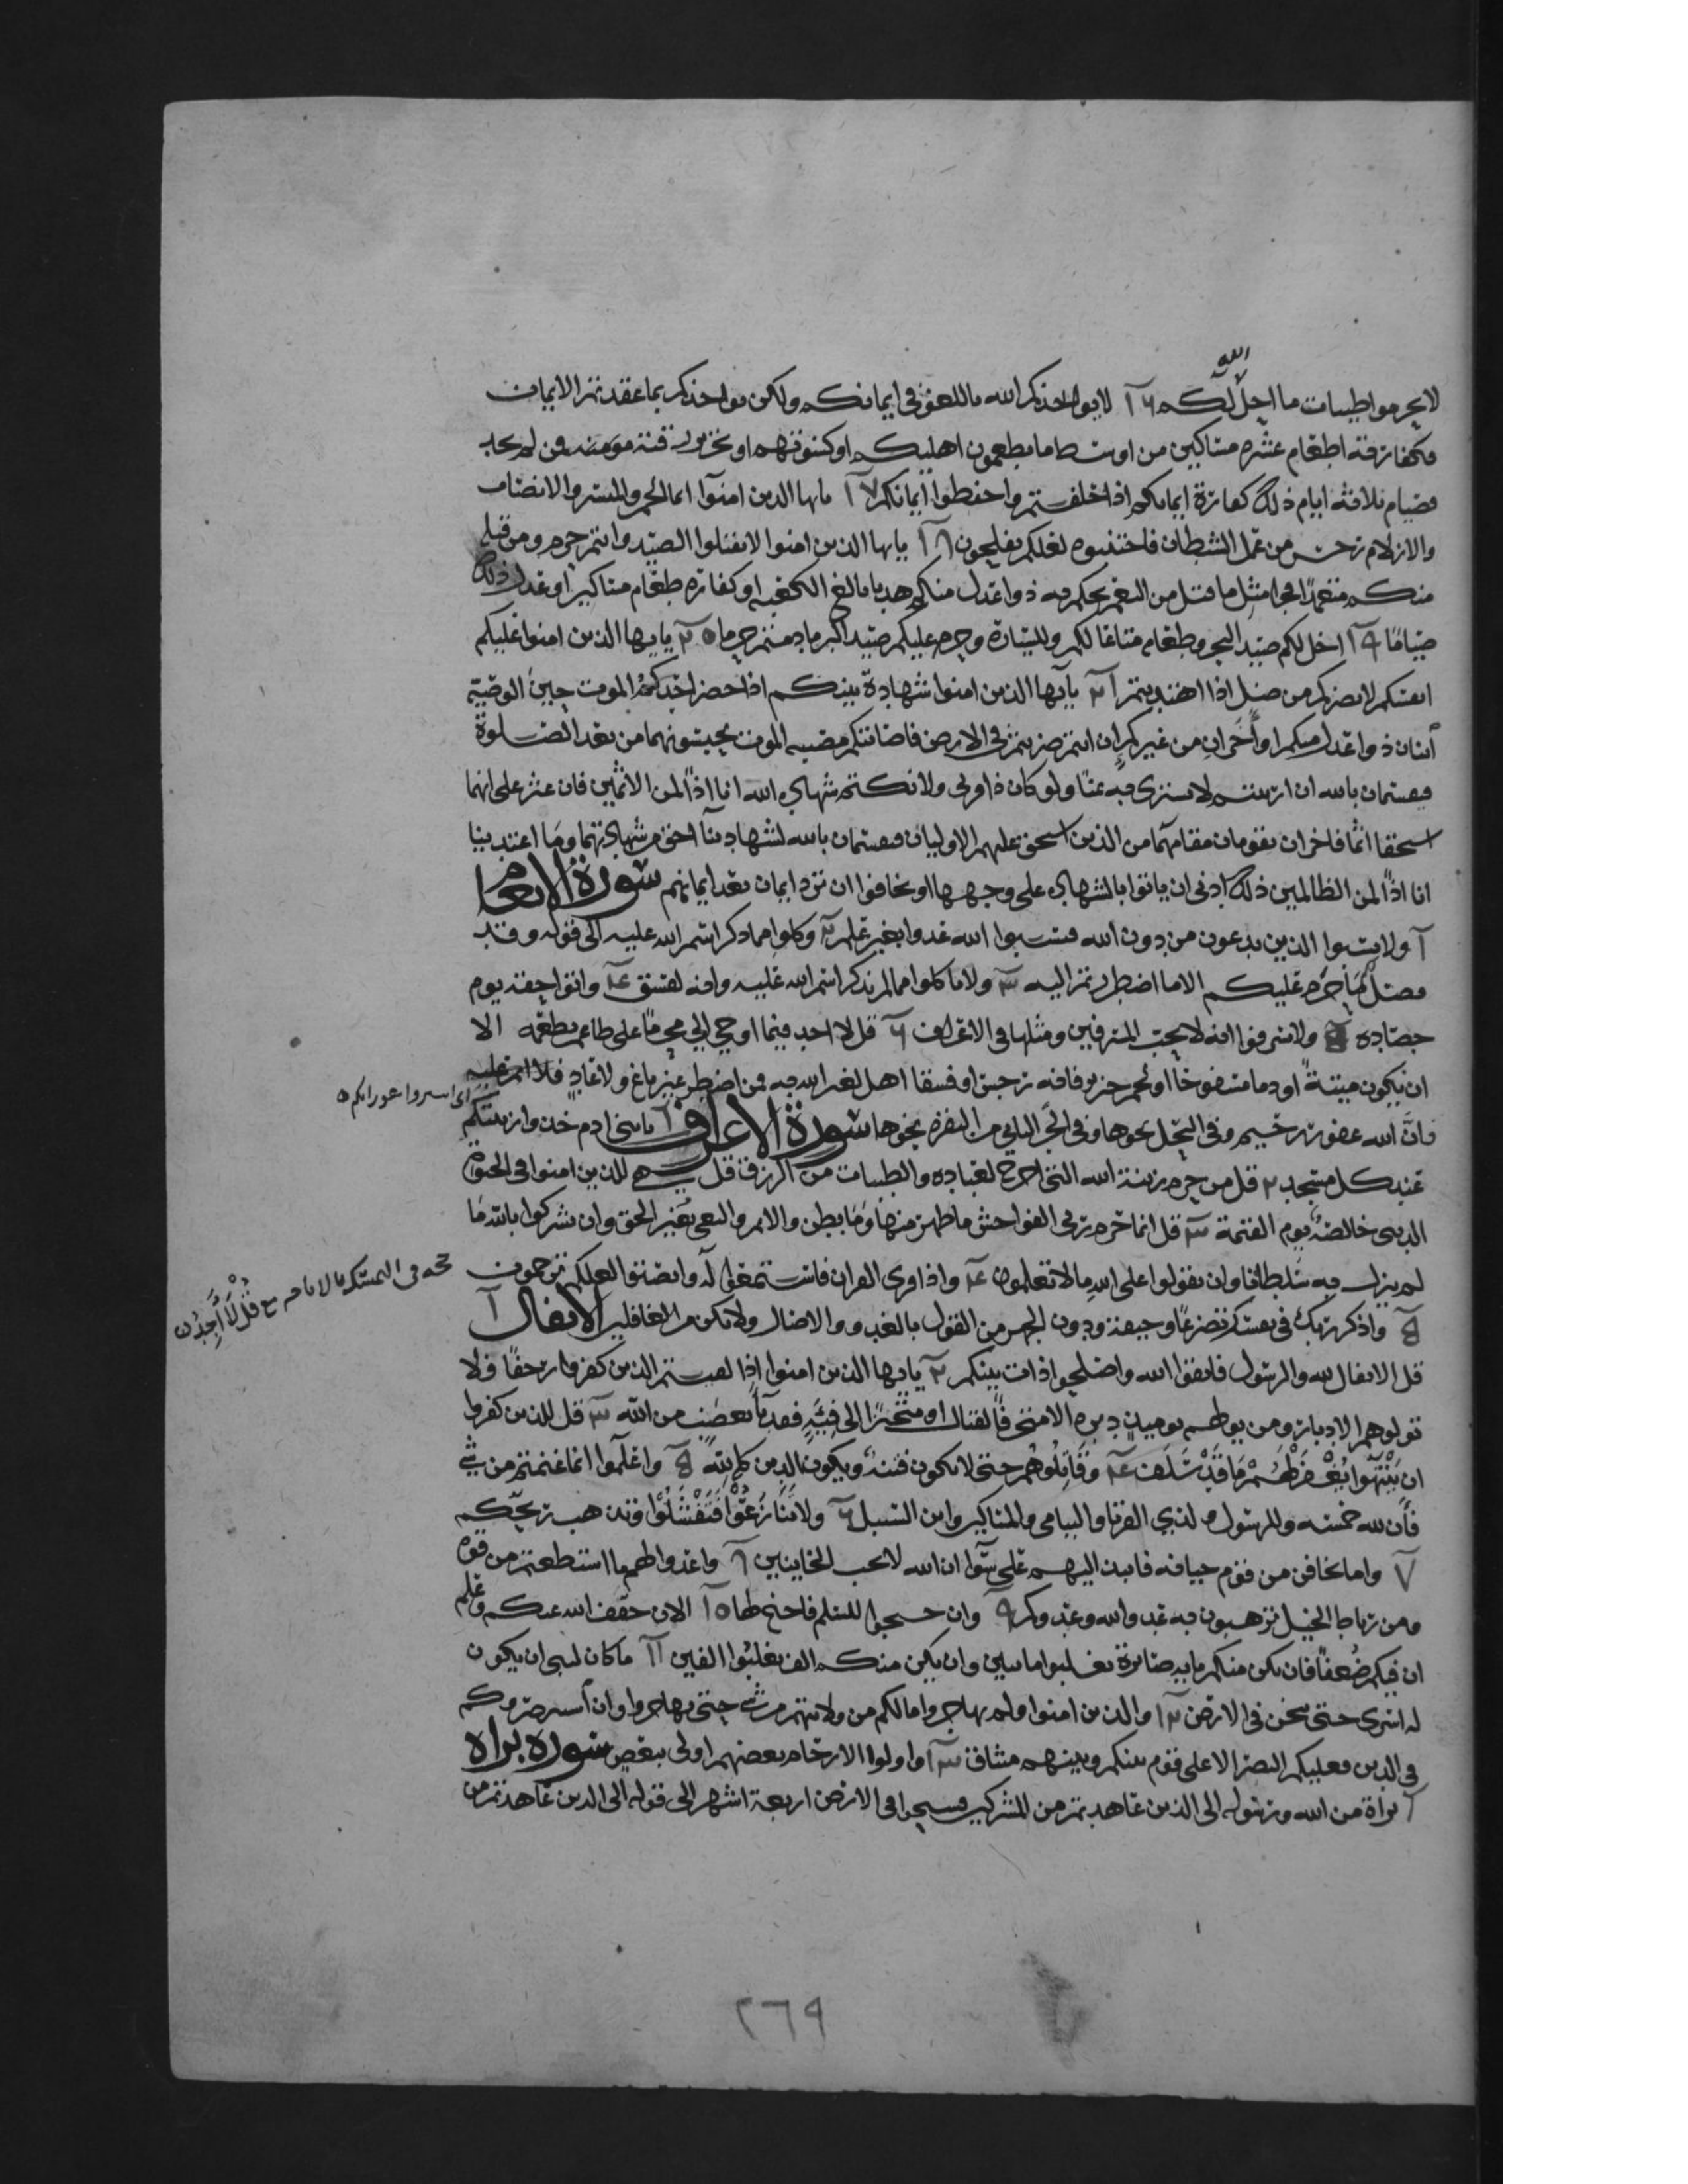 لا تحرموا طيبات ما احل الله لكم ١٦ لا يواخذكم الله باللغو في ايمانكم ولكن يواخذكم بما عقدتم الايمان
فكفارته اطعام عشرة مساكين من اوسط ما تطعمون اهليكم او كسوتهم او تحرير رقبة مومنة فمن لم يجد
فصيام ثلاثة ايام ذلك كفارة ايمانكم اذا حلفتم واحفظوا ايمانكم ١٧ يايها الذين امنوا انما الخمر والميسر والانصاب
والازلام رجس من عمل الشيطان فاجتنبوه لعلكم تفلحون ١٨ يايها الذين امنوا لا تقتلوا الصيد وانتم حرم ومن قتله
منكم متعمدا فجزا مثل ما قتل من النعم يحكم به ذوا عدل منكم هديا بالغ الكعبة او كفارة طعام مساكين او عدل ذلك
صياما ١٩ احل لكم صيد البحر وطعامه متاعا لكم وللسيارة وحرم عليكم صيد البر ما دمتم حرما ٢٠ يايها الذين امنوا عليكم
انفسكم لا يضركم من ضل اذا اهتديتم ٢١ يايها الذين امنوا شهادة بينكم اذا حضر احدكم الموت حين الوصية
اثنان ذوا عدل منكم او اخران من غيركم ان انتم ضربتم في الارض فاصابتكم مصيبة الموت تحبسونهما من بعد الصلوة
فيقسمان بالله ان ارتبتم لا نشتري به ثمنا ولو كان ذا قربى ولا نكتم شهادة الله انا اذا لمن الاثمين فان عثر على انهما
استحقا اثما فاخران يقومان مقامهما من الذين استحق عليهم الاوليان فيقسمان بالله لشهادتنا احق من شهادتهما وما اعتدينا
انا اذا لمن الظالمين ذلك ادنى ان ياتوا بالشهادة على وجهها او يخافوا ان ترد ايمان بعد ايمانهم سورة الانعام
١ ولا تسبوا الذين يدعون من دون الله فيسبوا الله عدوا بغير علم ٢ وكلوا مما ذكر اسم الله عليه الى قوله وقد
فصل لكم ما حرم عليكم الا ما اضطررتم اليه ٣ ولا تاكلوا مما لم يذكر اسم الله عليه وانه لفسق ٤ واتوا حقه يوم
حصاده ٥ ولا تسرفوا انه لا يحب المسرفين ومثلها في الاعراف ٦ قل لا اجد فيما اوحي الي محرما على طاعم يطعمه الا
ان يكون ميتة او دما مسفوحا او لحم خنزير فانه رجس او فسقا اهل لغير الله به فمن اضطر غير باغ ولا عاد فلا اثم عليه
فان الله غفور رحيم وفي النحل نحوها وفي الجز الثاني من البقرة نحوها سورة الاعراف ١ يا بني ادم خذوا زينتكم
اى استروا عوراتكم
عند كل مسجد ٢ قل من حرم زينة الله التي اخرج لعباده والطيبات من الرزق قل هي للذين امنوا في الحيوة
الدنيا خالصة يوم القيمة ٣ قل انما حرم ربي الفواحش ما ظهر منها وما بطن والاثم والبغي بغير الحق وان تشركوا بالله ما
لم ينزل به سلطانا وان تقولوا على الله ما لا تعلمون ٤ واذا قرئ القران فاستمعوا له وانصتوا لعلكم ترحمون
٥ واذكر ربك في نفسك تضرعا وخيفة ودون الجهر من القول بالغدو والاصال ولا تكن من الغافلين الانفال ١
قل الانفال لله والرسول فاتقوا الله واصلحوا ذات بينكم ٢ يايها الذين امنوا اذا لقيتم الذين كفروا زحفا فلا
تولوهم الادبار ومن يولهم يوميذ دبره الا متحرفا لقتال او متحيزا الى فئة فقد باء بغضب من الله ٣ قل للذين كفروا
ان ينتهوا يغفر لهم ما قد سلف ٤ وقاتلوهم حتى لا تكون فتنة ويكون الدين كله لله ٥ واعلموا انما غنمتم من شي
فان لله خمسه وللرسول ولذي القربى واليتامى والمساكين وابن السبيل ٦ ولا تنازعوا فتفشلوا وتذهب ريحكم
٧ واما تخافن من قوم خيانة فانبذ اليهم على سوا ان الله لا يحب الخاينين ٨ واعدوا لهم ما استطعتم من قوة
ومن رباط الخيل ترهبون به عدو الله وعدوكم ٩ وان جنحوا للسلم فاجنح لها ١٠ الان خفف الله عنكم وعلم
ان فيكم ضعفا فان يكن منكم ماية صابرة يغلبوا ماتين وان يكن منكم الف يغلبوا الفين ١١ ما كان لنبي ان يكون
له اسرى حتى يثخن في الارض ١٢ والذين امنوا ولم يهاجروا ما لكم من ولايتهم من شي حتى يهاجروا وان استنصروكم
في الدين فعليكم النصر الا على قوم بينكم وبينهم ميثاق ١٣ واولوا الارحام بعضهم اولى ببعض سورة براه
١ براة من الله ورسوله الى الذين عاهدتم من المشركين فسيحوا في الارض اربعة اشهر الى قوله الى الذين عاهدتم من
٢٦٩